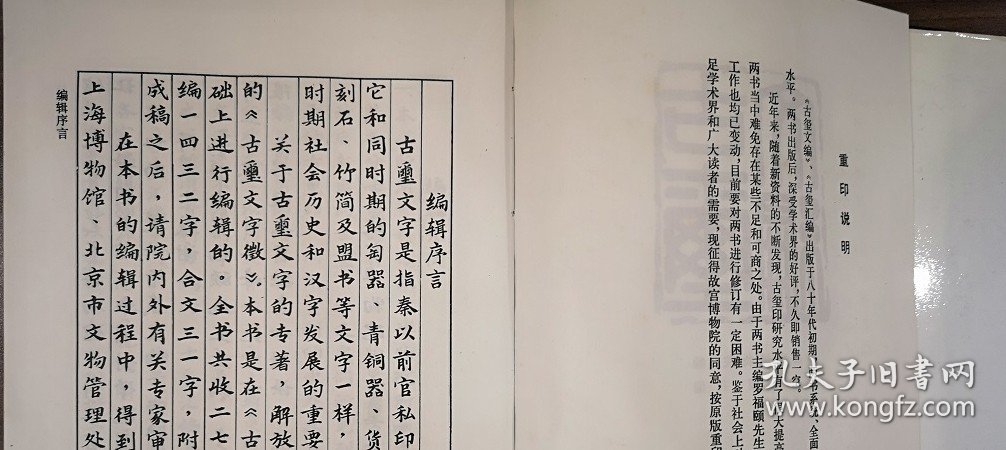 重印说明
《古玺文编》、《古玺汇编》出版于八十年代初期，书系、全面
水平。两书出版后，深受学术界的好评，不久即销售一空。
近年来，随着新资料的不断发现，古玺印研究水有了大提高
两书当中难免存在某些不足和可商之处。由于两书主编罗福颐先生
工作也均已变动，目前要对两书进行修订有一定困难。鉴于社会上
足学术界和广大读者的需要，现征得故宫博物院的同意，按原版重印
编辑序言
古璽文字是指秦以前官私印
它和同时期的匋器、青铜器、货
刻石、竹简及盟书等文字一样，
时期社会历史和汉字发展的重要
关于古璽文字的专著，解放
的《古璽文字徵》。本书是在《古
础上进行编辑的。全书共收二七
编一四三二字，合文三一字，附
成稿之后，请院内外有关专家审
在本书的编辑过程中，得到
上海博物馆、北京市文物管理处
编辑序言
孔夫子旧书网
www.kongfz.com